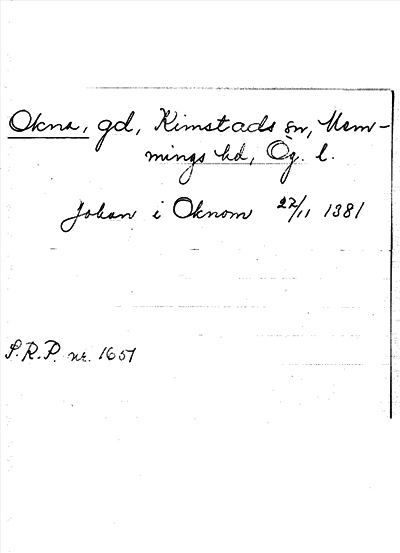 Okna, gd, Kimstads sn, Mem-
mings hd, Ög. l.
Johan i Oknom 27/11 1381
S.R.P. nr. 1651